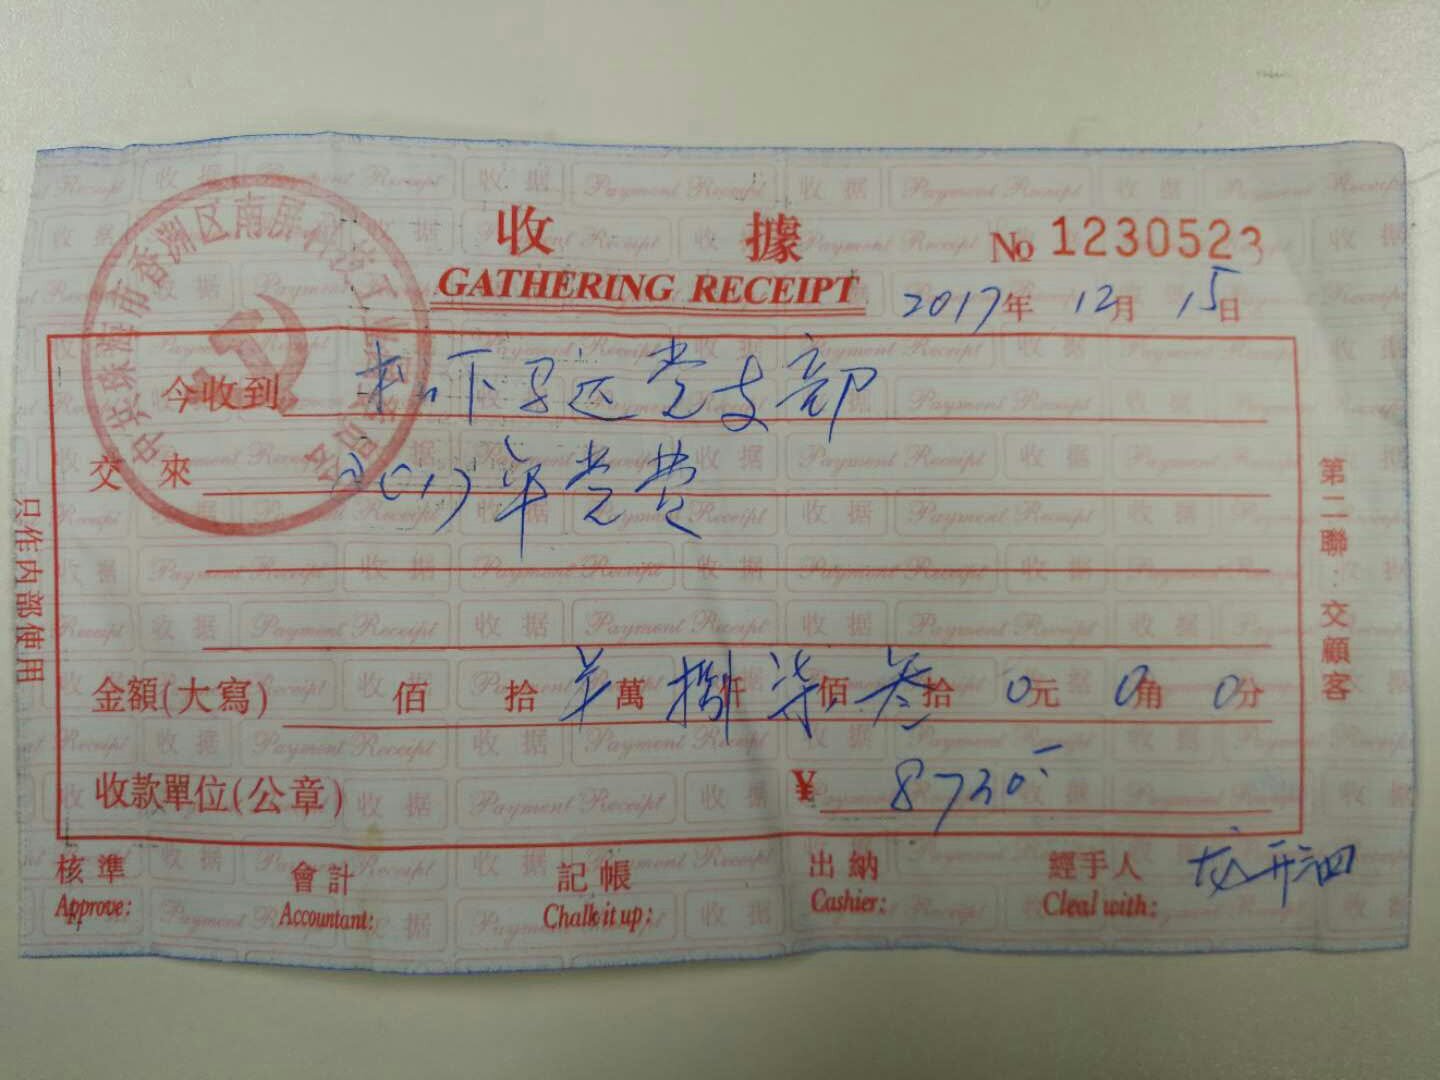 收據
№ 1230523
GATHERING RECEIPT
2017年 12月 15日
今收到 松下马达党支部
交來 2017年党费
金額(大寫) 佰 拾 萬 捌仟 柒佰 叁拾 0元 0角 0分
收款單位(公章) ¥ 8730
核準 會計 記帳 出納 經手人
Approve: Accountant: Chalk it up: Cashier: Cleal with:
只作内部使用
第二聯:交顧客
中共珠海市香洲区南屏科技工